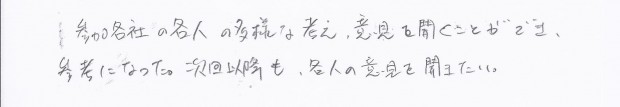 参加各社の各人の多様な考え、意見を聞くことができ、
参考になった。次回以降も、各人の意見を聞きたい。